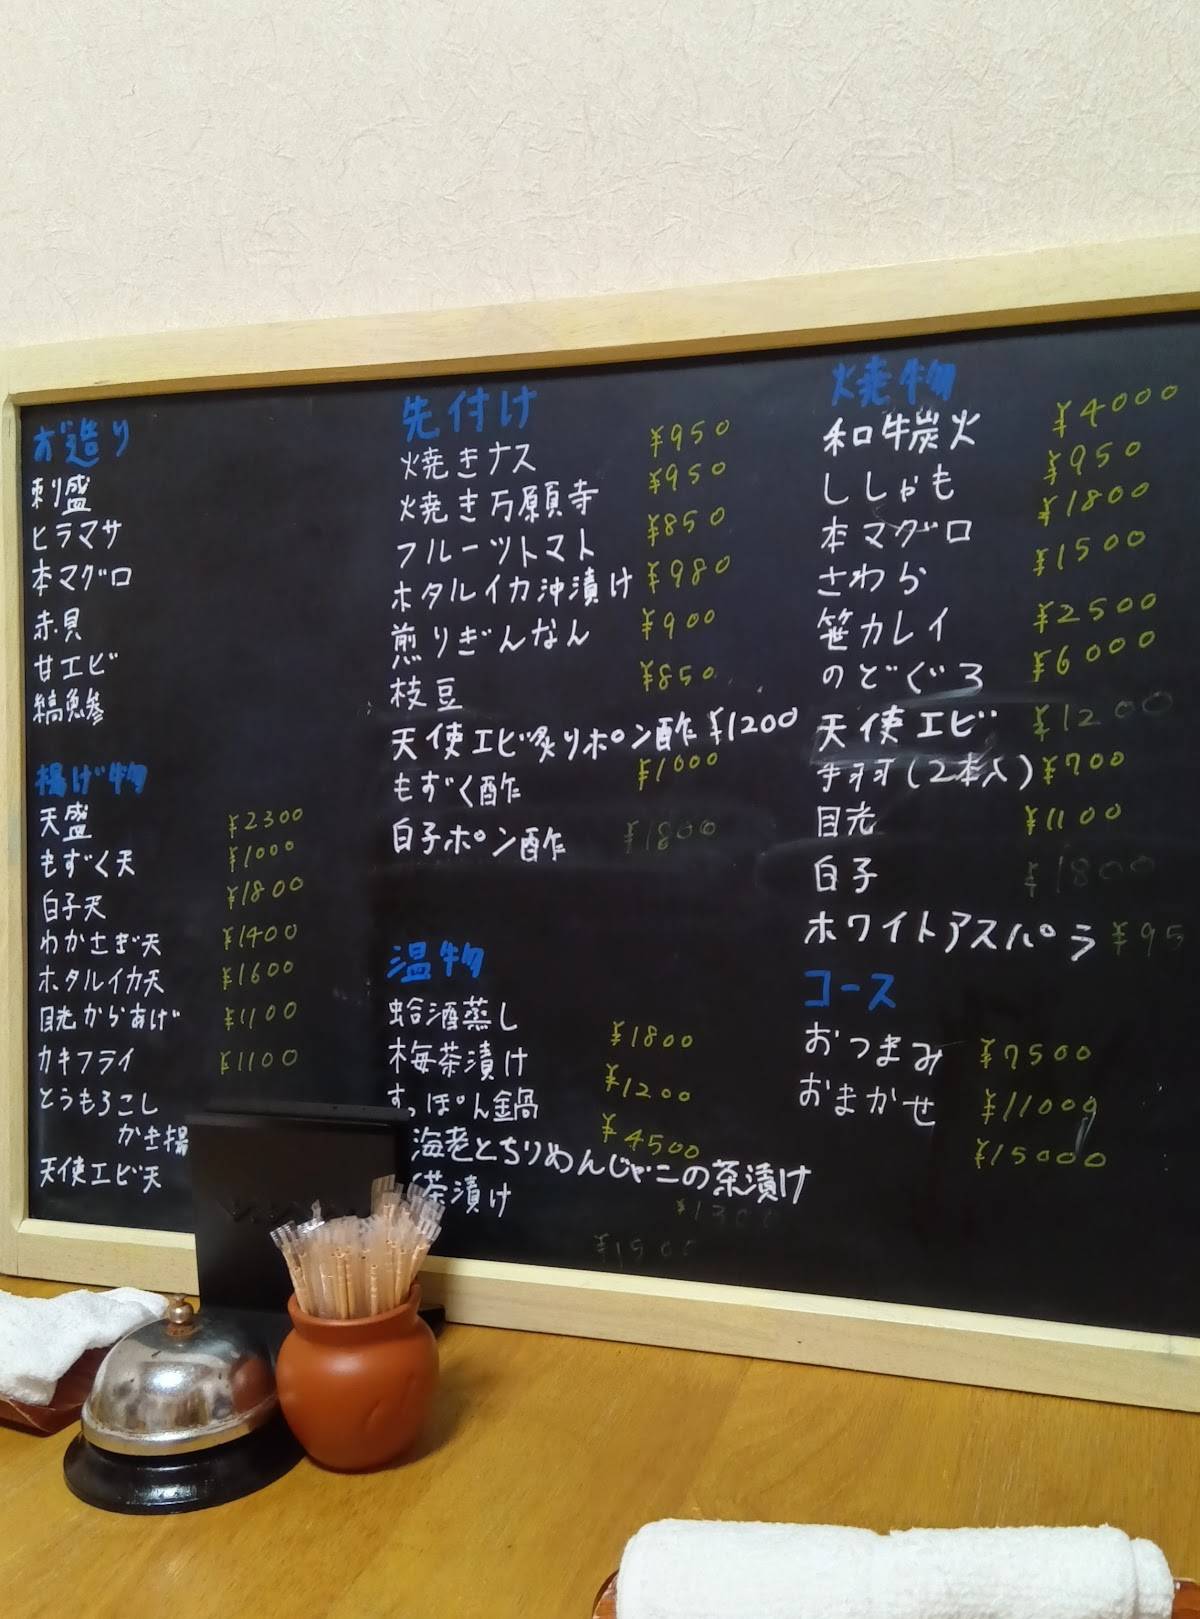 お造り
刺盛
ヒラマサ
本マグロ
赤貝
甘エビ
縞魚參
揚げ物
天盛 ¥2300
もずく天 ¥1000
白子天 ¥1800
わかさぎ天 ¥1400
ホタルイカ天 ¥1600
目光からあげ ¥1100
カキフライ ¥1100
とうもろこし
かき揚
天使エビ天
先付け
焼きナス ¥950
焼き万願寺 ¥950
フルーツトマト ¥850
ホタルイカ沖漬け ¥980
煎りぎんなん ¥900
枝豆 ¥850
天使エビ炙りポン酢 ¥1200
もずく酢 ¥1000
白子ポン酢 ¥1800
温物
蛤酒蒸し ¥1800
梅茶漬け ¥1200
すっぽん鍋 ¥4500
海老とちりめんじゃこの茶漬け ¥1300
茶漬け ¥1500
焼物
和牛炭火 ¥4000
ししゃも ¥950
本マグロ ¥1800
さわら ¥1500
笹カレイ ¥2500
のどぐろ ¥6000
天使エビ ¥1200
手羽(2本入) ¥700
目光 ¥1100
白子 ¥1800
ホワイトアスパラ ¥95
コース
おつまみ ¥7500
おまかせ ¥11000
¥15000